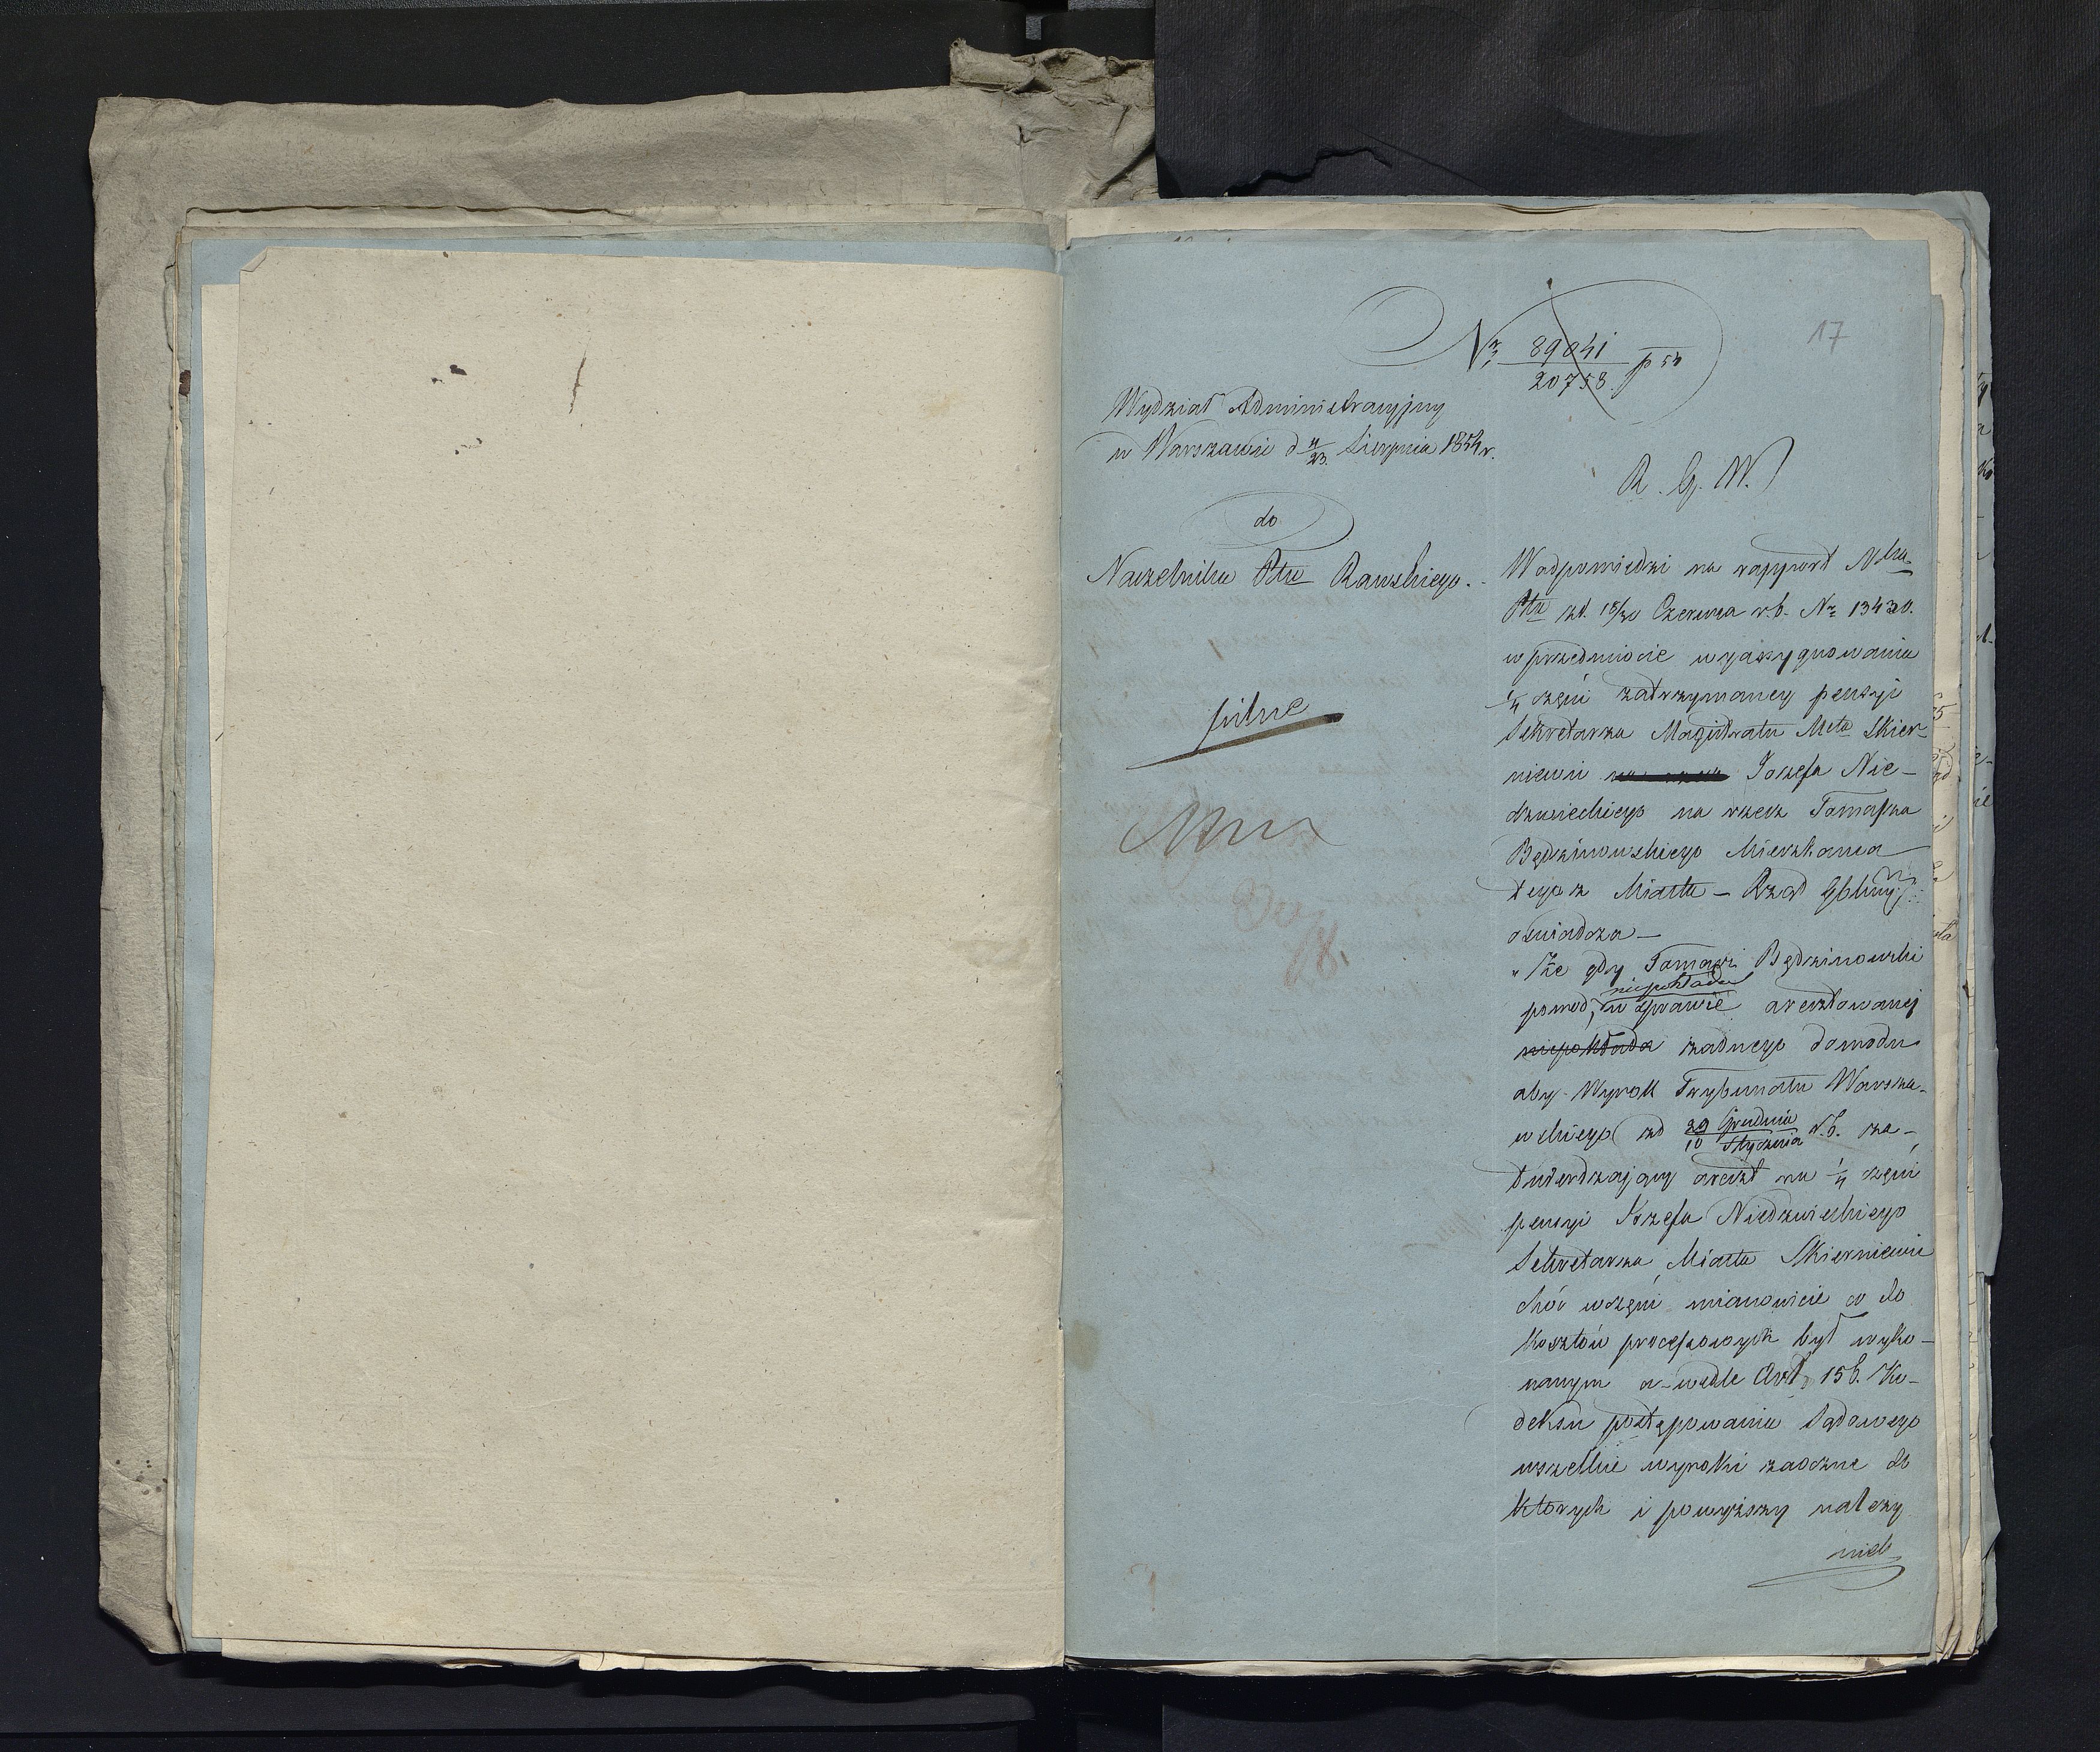 17
Nr 89041/20758 p 54
Wydział Administracyjny
w Warszawie d 11/23 Sierpnia 1854 r.
R. G. W.
do
Naczelnika Ptu Rawskiego.
pilne
W odpowiedzi na rapport Nka
Ptu zd. 18/30 Czerwca r.b. Nr 13430.
w przedmiocie wyassygnowania
1/4 części zatrzymaney pensyi
Sekretarza Magistratu Mta Skier-
niewic Jozefa Nie-
dzwieckiego na rzecz Tomasza
Będzinowskiego Mieszkanca
tegoż Miasta – Rząd GbLny
oswiadcza –
Że gdy Tomasz Będzinowski
niepokłada
powod, w sprawie aresztowanej
niepokłada żadnego dowodu
aby Wyrok Trybunału Warsza-
wskiego zd 29 Grudnia/10 Stycznia r.b. za-
twierdzający areszt na 1/4 części
pensyi Jozefa Niedzwieckiego
Sekretarza Miasta Skierniewic
chóć w części mianowicie co do
kosztów processowych był wyko-
nanym a wedle Art. 156. Ko-
deksu postępowania Sądowego
wszelkie wyroki zaoczne do
ktorych i powyższy należy